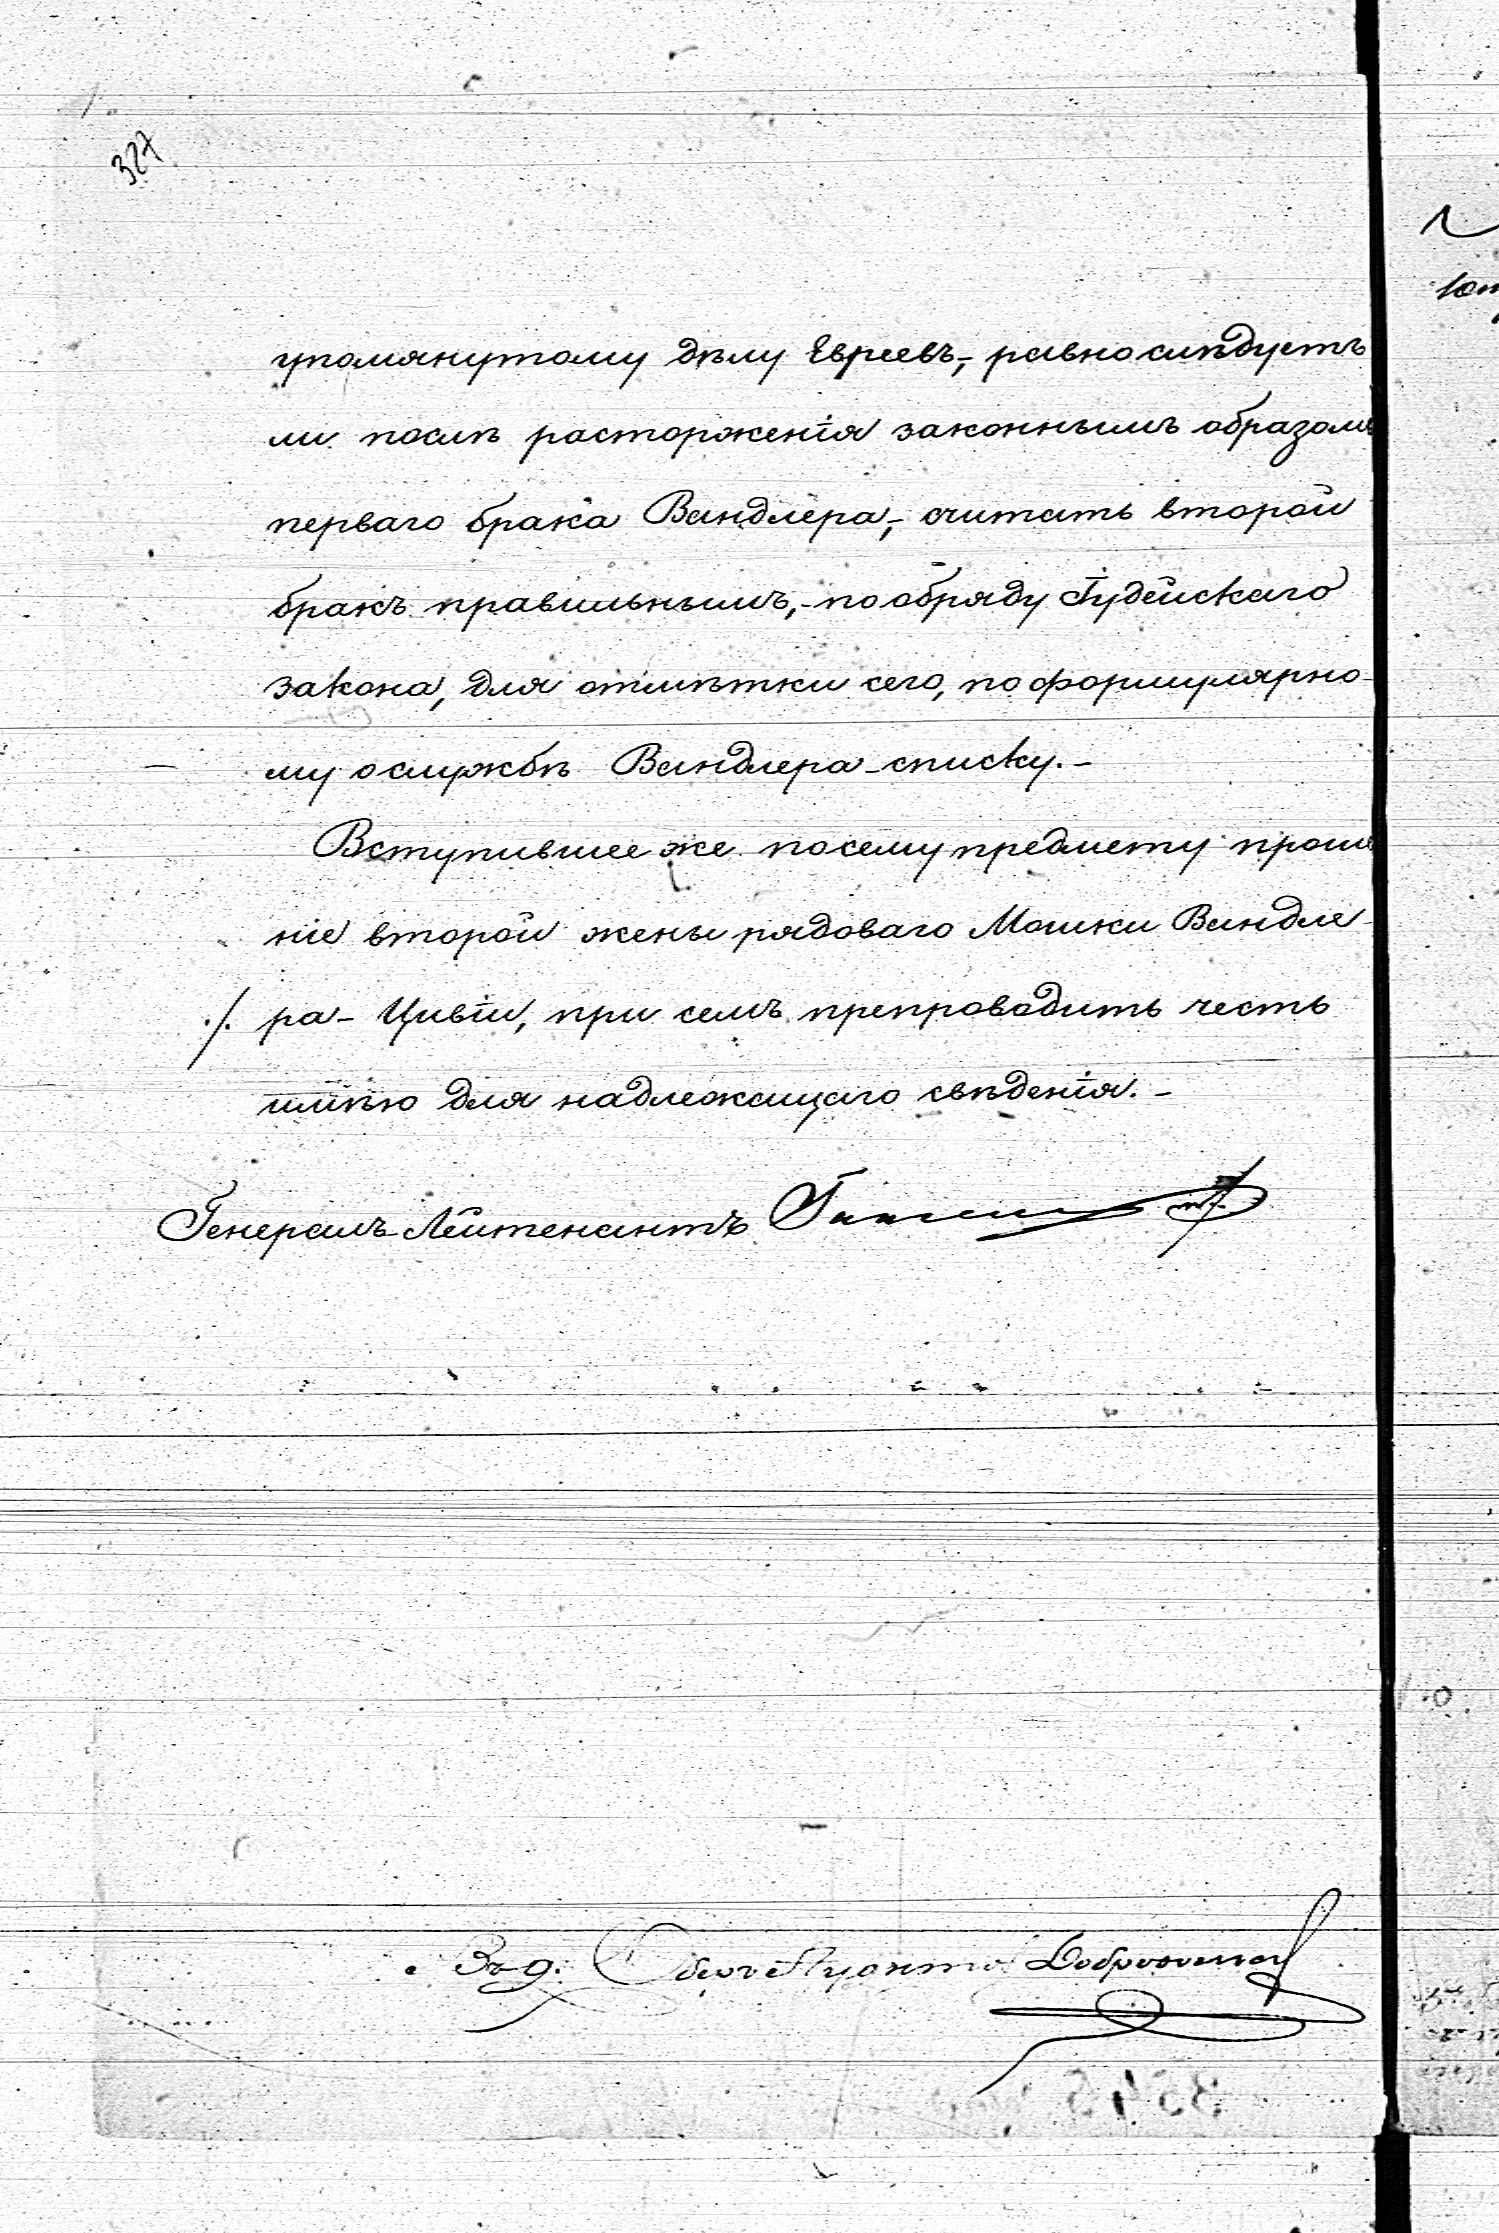 327
упомянутому дѣлу Евреевъ,- равно слѣдуетъ
ли послѣ расторженія законнымъ образомъ
перваго брака Вандлера,- считать второй
бракъ правильнымъ,- по обряду Іудейскаго
закона, для отмѣтки сего, по формулярно-
му о службѣ Вандлера - списку.-
Вступившее же по сему предмету проше
ніе второй жены рядоваго Мошки Вандле-
./. ра - Цивіи, при семъ препроводить честь
имѣю для надлежащаго свѣденія.-
Генералъ-Лейтенантъ
За д. Оберъ Аудитора